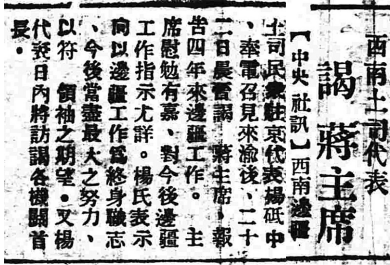 西南土司代表
謁蔣主席
【中央社訊】西南邊疆
土司民衆駐京代表楊砥中
、奉電召見來渝後、二十
二日晨奮謁　蔣主席、報
告四年來邊疆工作。　主
席慰勉有嘉、對今後邊疆
工作指示尤詳。楊氏表示
向以邊疆工作爲終身職志
、今後當盡最大之努力、
以符　領袖之期望。又楊
代表日內將訪謁各機關首
長。